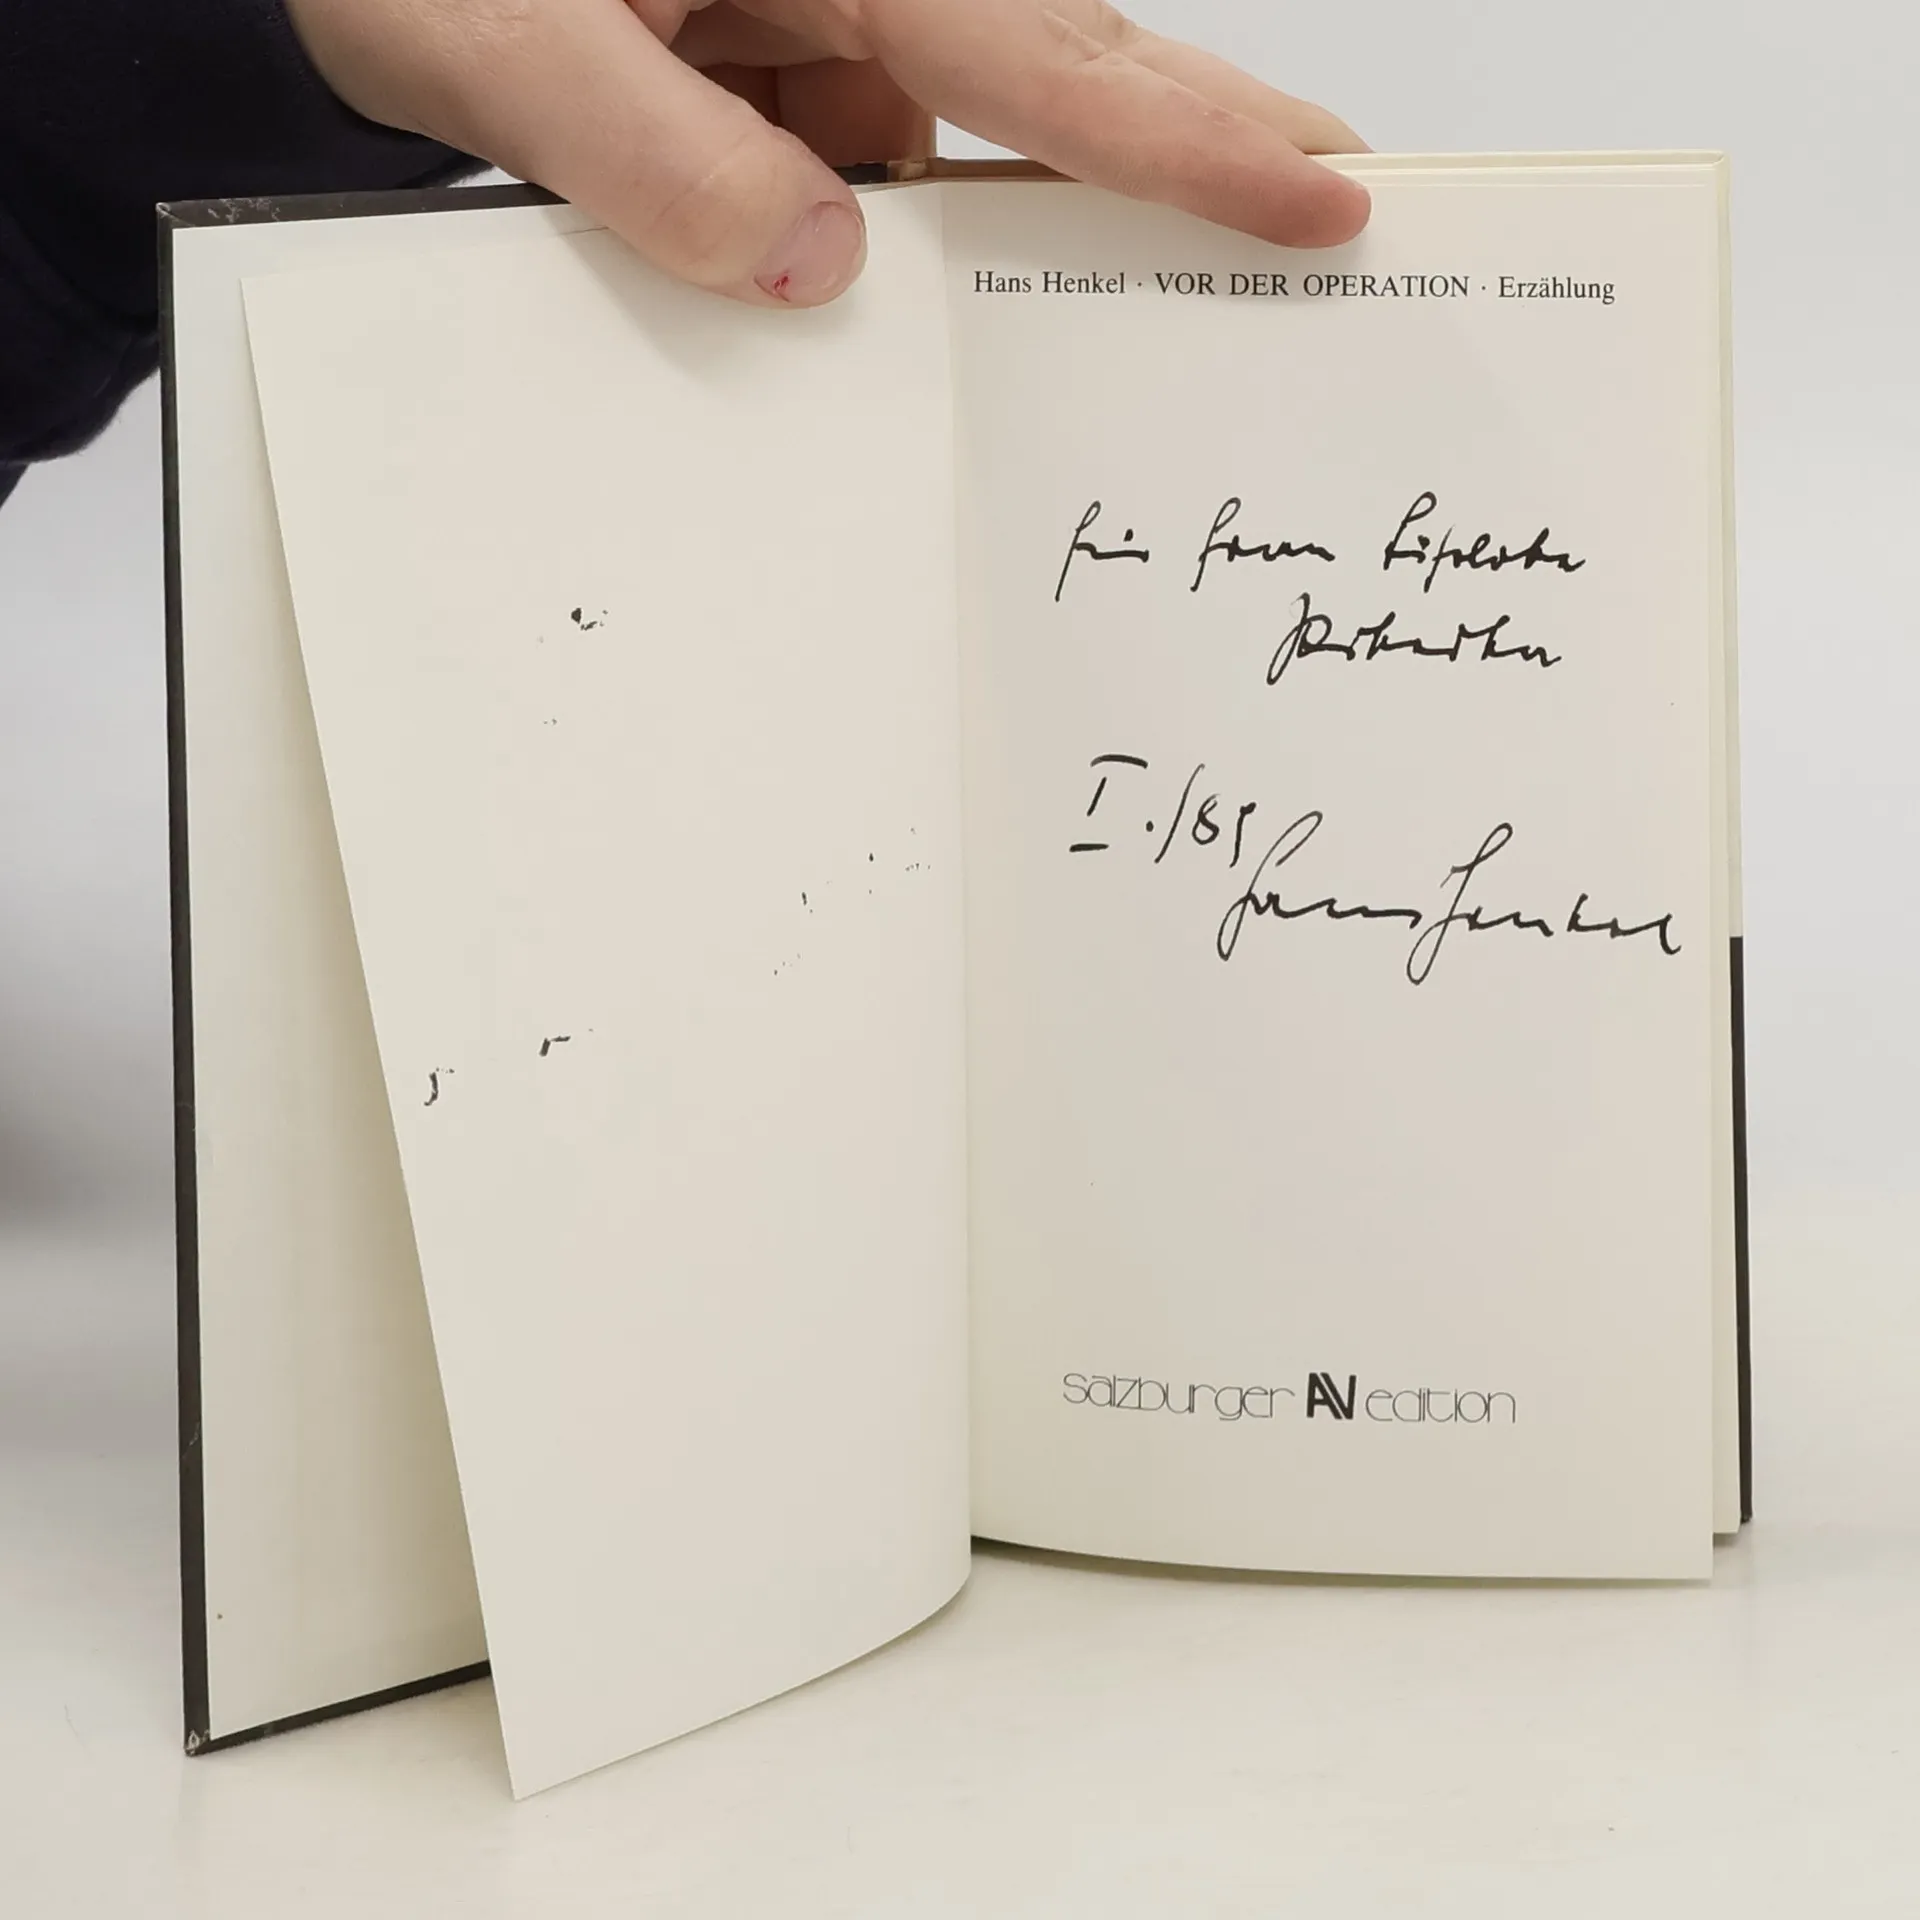 Hans Henkel · VOR DER OPERATION · Erzählung
für Frau Liselotte
I./89
Hans Henkel
salzburger AV edition